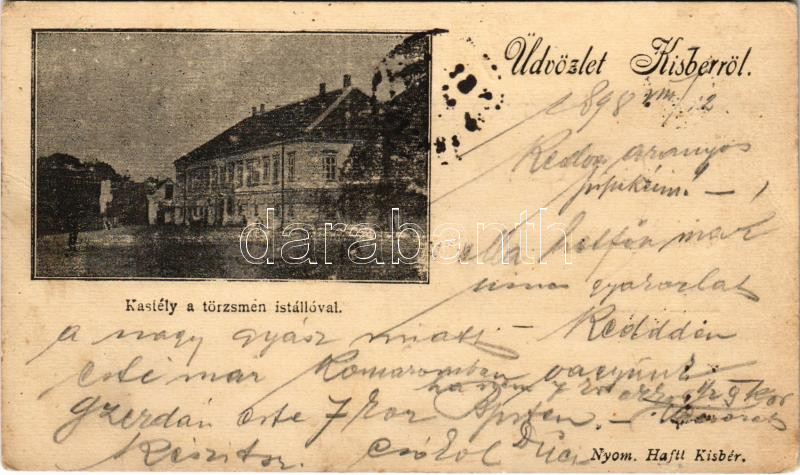 Üdvözlet Kisbérről.
1898 VIII/12
Kedves aranyos
pipikéim! –
Ma hétfőn már
nincs gyakorlat
Kastély a törzsmén istállóval.
a nagy gyász miatt – Kedden
este már Komáromban vagyunk
Szerdán este 7 kor Bpsten. –
csókol
Nyom. Haftl Kisbér.
darabanth